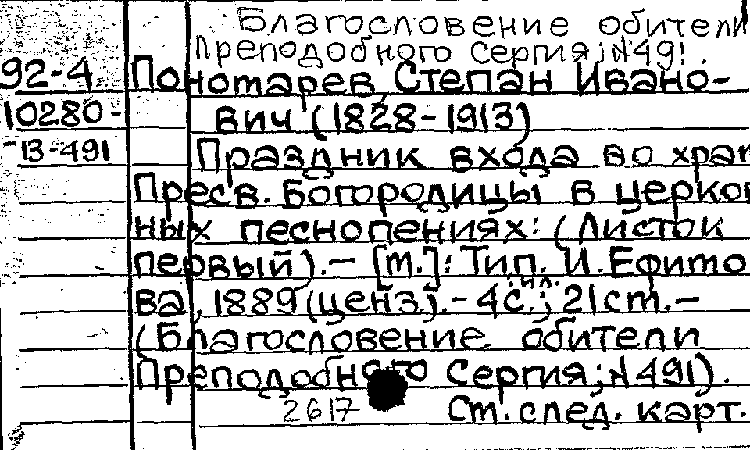 Благословение обители
Преподобного Сергия; №491.
92-4 Пономарев, Степан Ивано-
10280- вич (1828-1913)
13-491 Праздник входа во храм
Пресв. Богородицы в церков
ных песнопениях: (Листок
первый).- [М.]: Тип. И. Ефимо
ва, 1889 (ценз.).- 4с.: ил.; 21см.-
(Благословение обители
Преподобного Сергия; №491).
2617 См. след. карт.